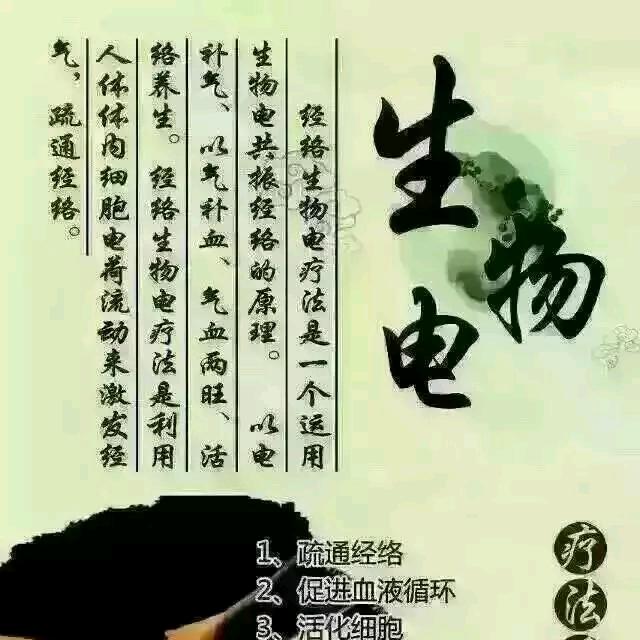 生物电
经络生物电疗法是一个运用
生物电共振经络的原理。以电
补气、以气补血、气血两旺、活
络养生。经络生物电疗法是利用
人体体内细胞电荷流动来激发经
气，疏通经络。
疗法
1、疏通经络
2、促进血液循环
3、活化细胞